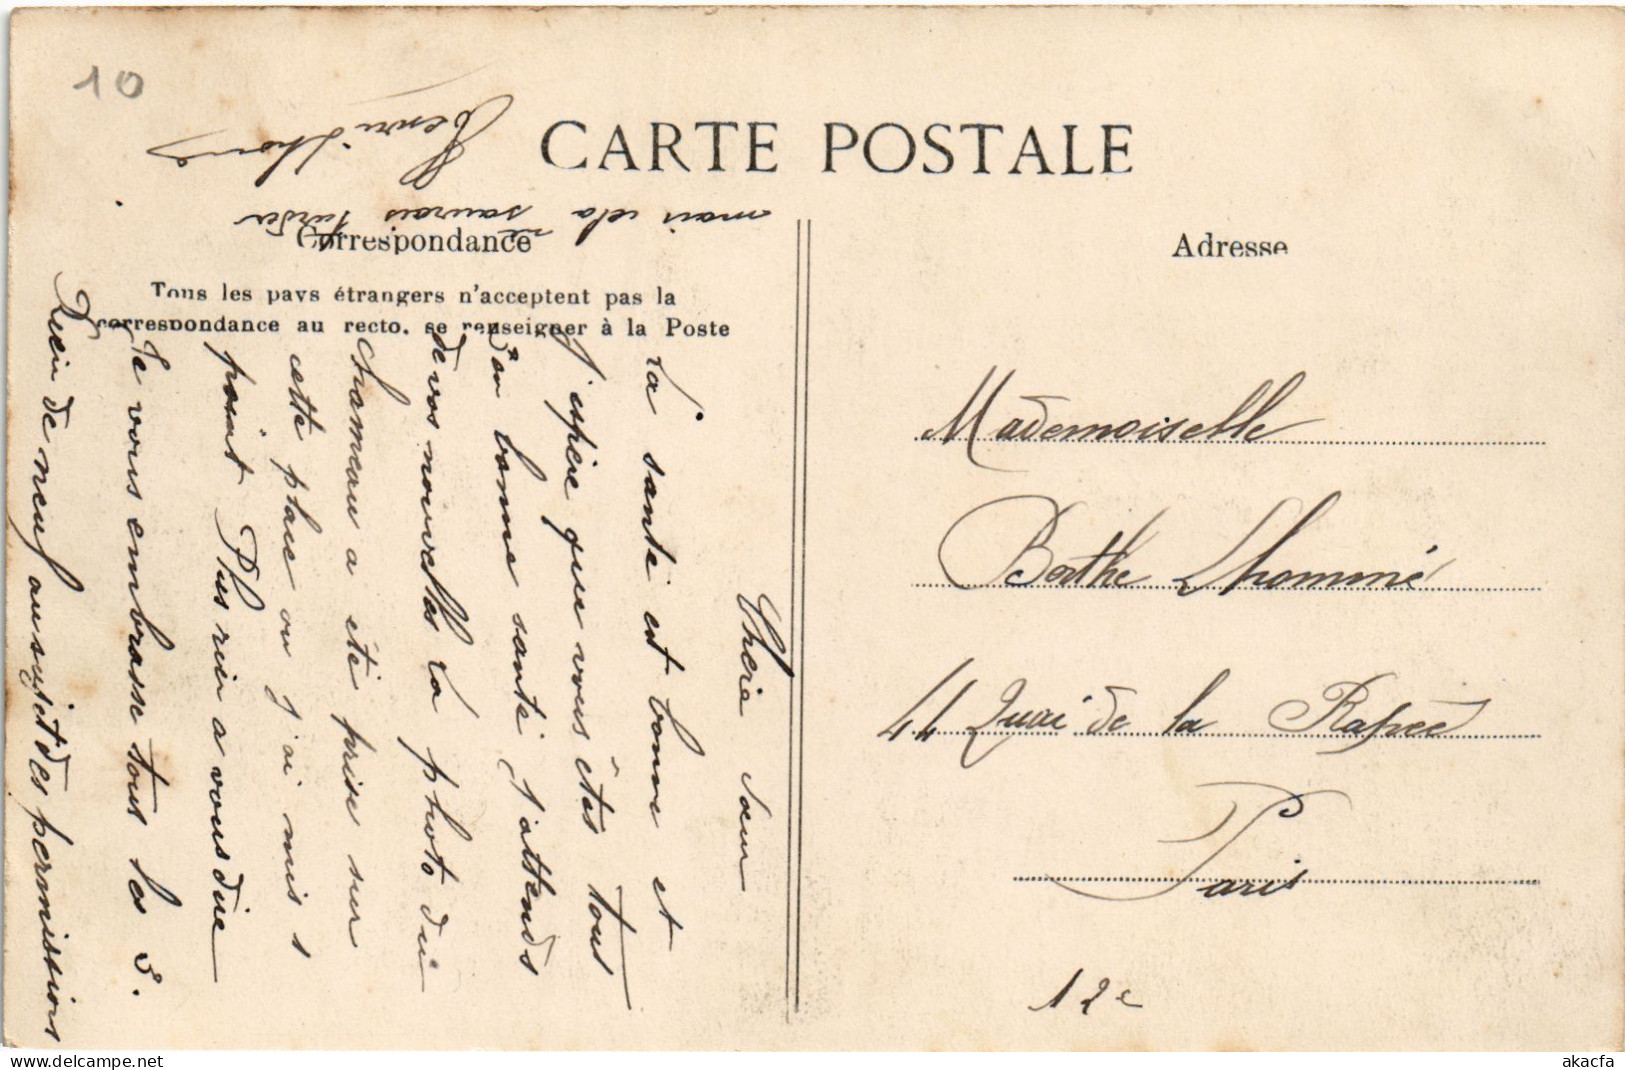 10
CARTE POSTALE
Correspondance
Adresse
Tous les pays étrangers n'acceptent pas la
correspondance au recto, se renseigner à la Poste
Chérie Sœur
La santé est bonne et
j'espère que vous êtes tous
en bonne santé j'attends
de vos nouvelles La photo du
chameau a été prise sur
cette place ou j'ai mis 1
point Plus rien a vous dire
Je vous embrasse tous les 3.
Rien de neuf au sujet des permissions
mais cela ne saurais tarder
Henri Lhomé
Mademoiselle
Berthe Lhommé
44 Quai de la Rapée
Paris
12e
akacfa